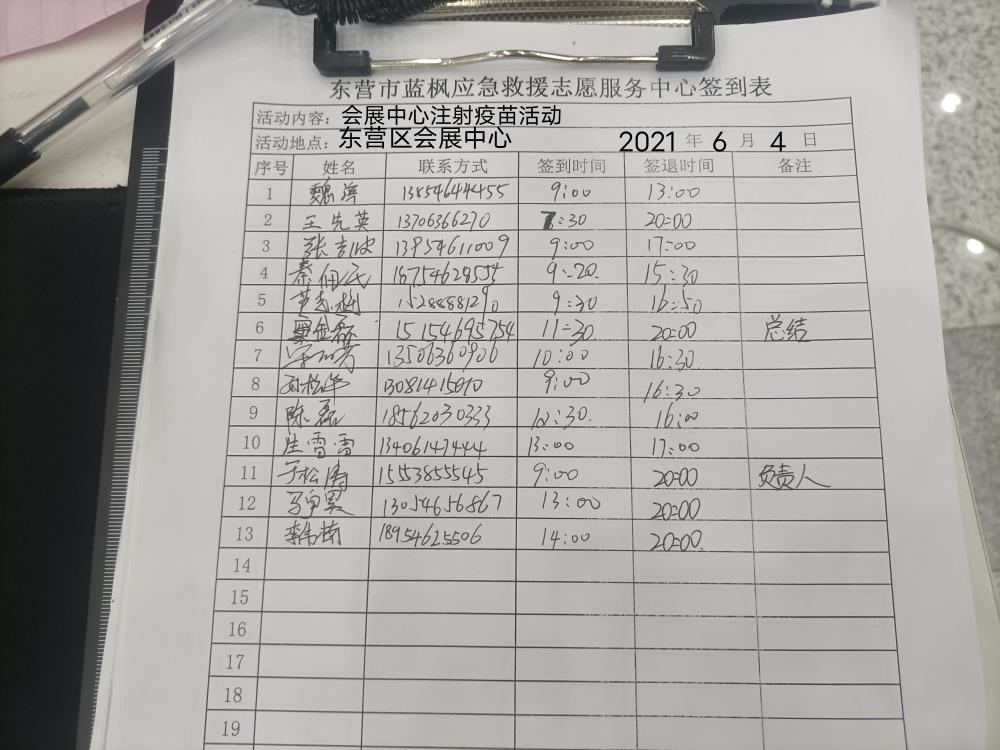 东营市蓝枫应急救援志愿服务中心签到表
活动内容：会展中心注射疫苗活动
活动地点：东营区会展中心 2021 年 6 月 4 日
序号 姓名 联系方式 签到时间 签退时间 备注
1 13854644455 9:00 13:00
2 王先英 13706366270 7:30 20:00
3 13954611009 9:00 17:00
4 秦佃民 18754628555 9:20 15:30
5 9:30 16:50
6 窦金磊 15154695754 11:30 20:00 总结
7 13506360906 10:00 16:30
8 孙松华 9:00 16:30
9 陈磊 18562030333 12:30 16:00
10 生雪雷 13406147444 13:00 17:00
11 于松涛 15553855545 9:00 20:00 负责人
12 13054656867 13:00 20:00
13 李伟楠 18954625506 14:00 20:00
14
15
16
17
18
19